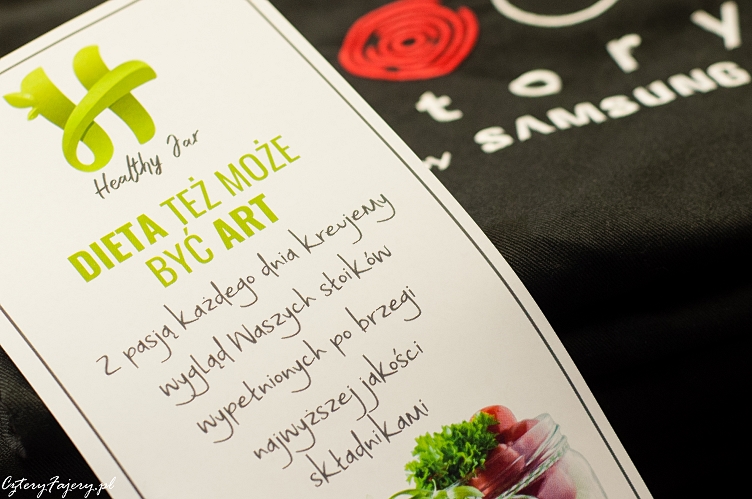 Healthy Jar
DIETA TEŻ MOŻE
BYĆ ART
z pasją każdego dnia kreujemy
wygląd Waszych słoików
wypełnionych po brzegi
najwyższej jakości
składnikami
tory
w SAMSUNG
CzteryFajery.pl